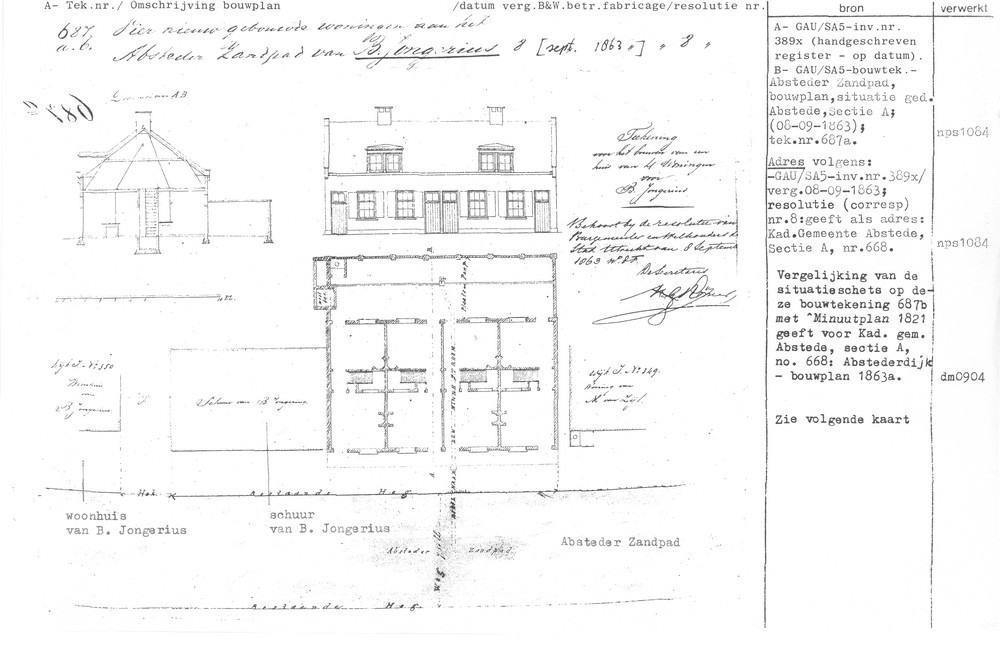 A- Tek.nr./ Omschrijving bouwplan /datum verg.B&W.betr.fabricage/resolutie nr.
bron
verwerkt
687 Vier nieuw gebouwde woningen aan het
a.b. Absteder Zandpad van B. Jongerius 8 [sept. 1863 "] " 8 "
687a
A B
Teekening
voor het bouwen van een
huis van 4 Woningen
voor
B. Jongerius
Behoort bij de resolutie van
Burgemeester en Wethouders der
Stad Utrecht van 8 September
1863 No
De Secretaris
wijk J. No. 350
Woonhuis
van
B. Jongerius
Schuur van B. Jongerius
wijk J. No. 349.
Woning van
Hek
Bestaande Heg
woonhuis
van B. Jongerius
schuur
van B. Jongerius
Absteder Zandpad
Absteder Zandpad
Bestaande Heg
A- GAU/SA5-inv.nr.
389x (handgeschreven
register - op datum).
B- GAU/SA5-bouwtek.-
Absteder Zandpad,
bouwplan,situatie ged.
Abstede,Sectie A;
(08-09-1863);
tek.nr.687a.
nps1084
Adres volgens:
-GAU/SA5-inv.nr.389x/
verg.08-09-1863;
resolutie (corresp)
nr.8:geeft als adres:
Kad.Gemeente Abstede,
Sectie A, nr.668.
nps1084
Vergelijking van de
situatieschets op de-
ze bouwtekening 687b
met ^Minuutplan 1821
geeft voor Kad. gem.
Abstede, sectie A,
no. 668: Abstederdijk
- bouwplan 1863a.
dm0904
Zie volgende kaart